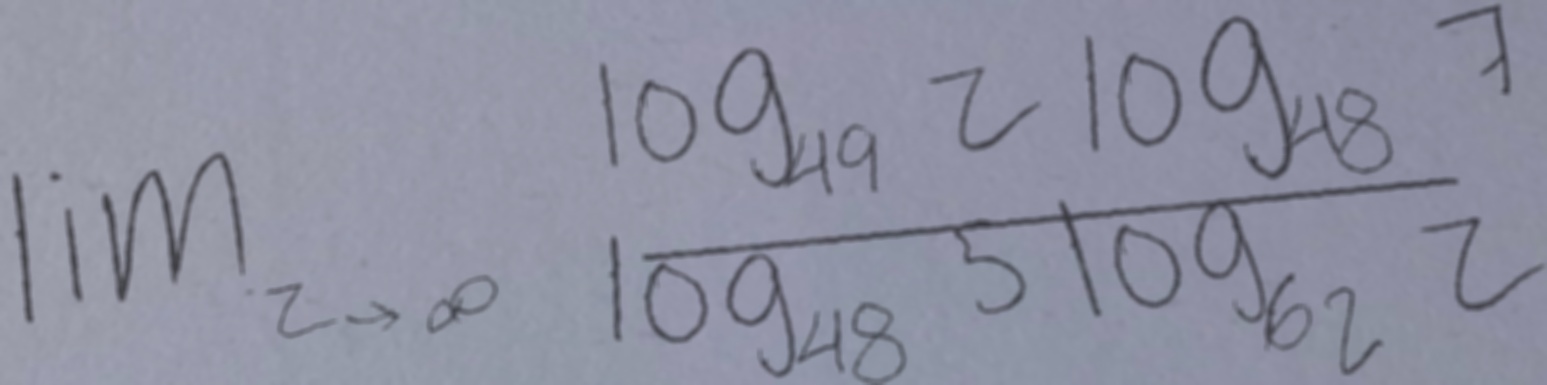 lim z→∞ log₄₉ z log₄₈ 7
log₄₈ 5 log₆₂ z